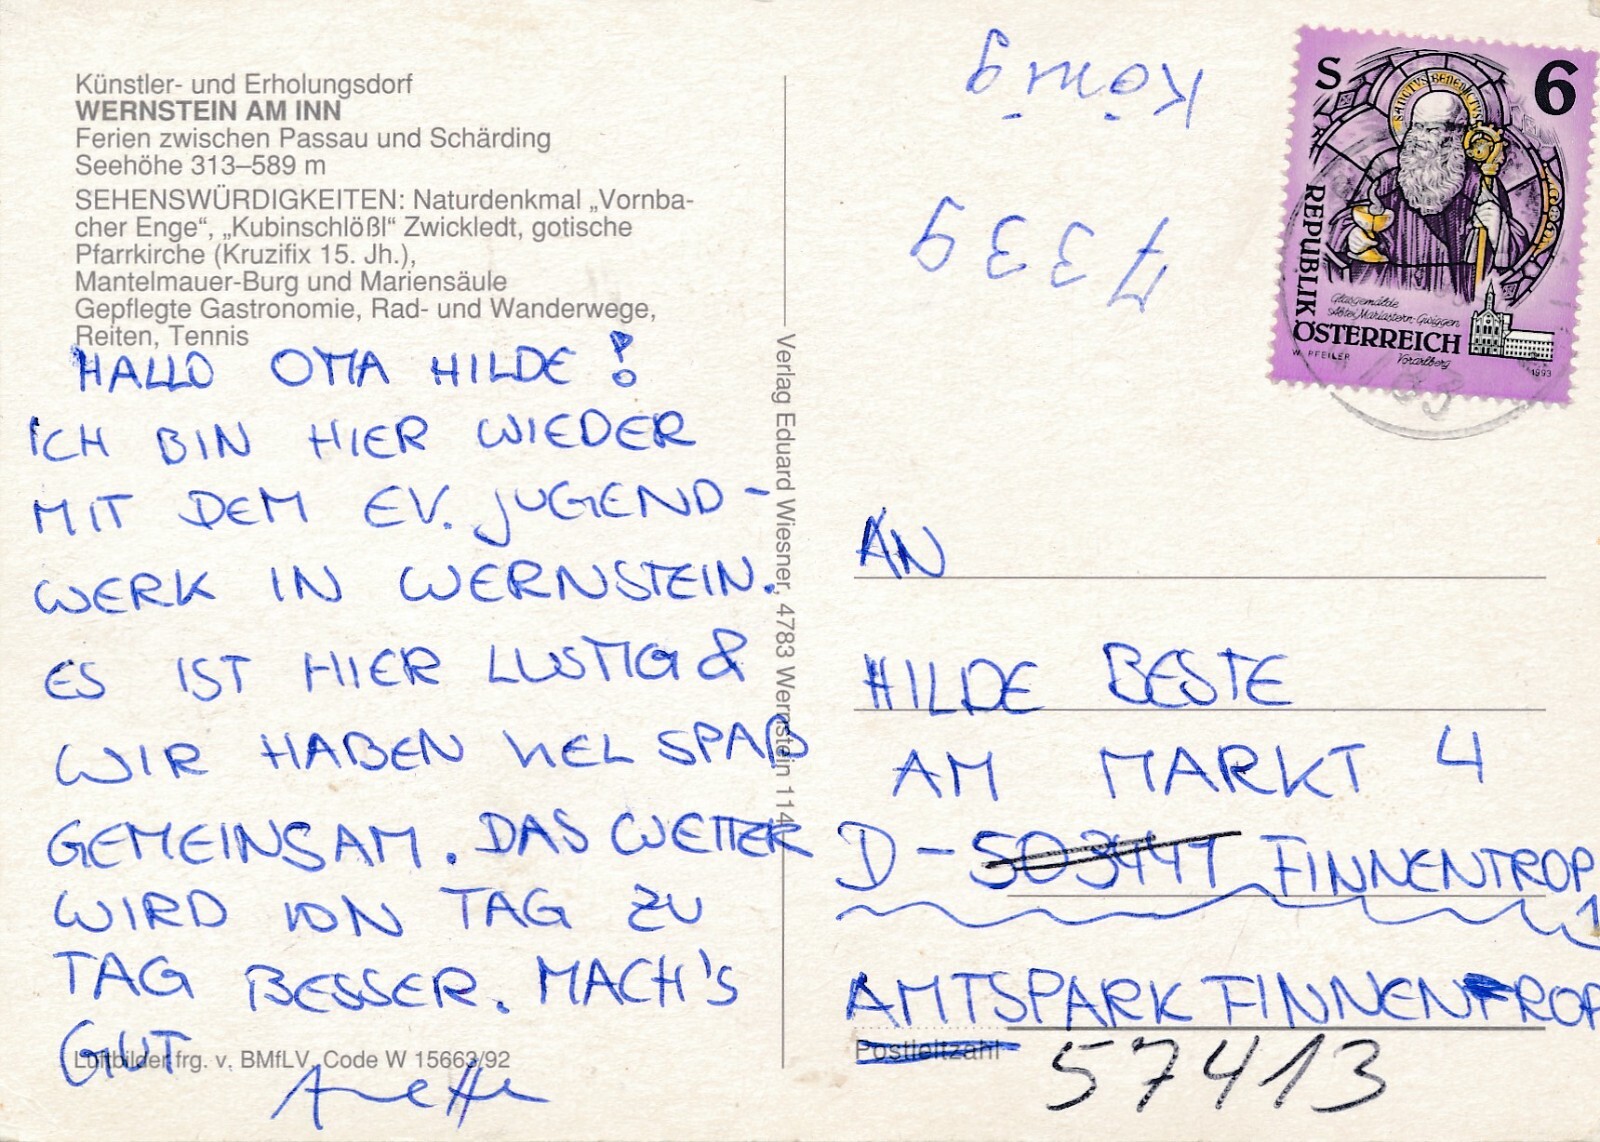 Künstler- und Erholungsdorf
WERNSTEIN AM INN
Ferien zwischen Passau und Schärding
Seehöhe 313–589 m
SEHENSWÜRDIGKEITEN: Naturdenkmal „Vornba-
cher Enge“, „Kubinschlößl“ Zwickledt, gotische
Pfarrkirche (Kruzifix 15. Jh.),
Mantelmauer-Burg und Mariensäule
Gepflegte Gastronomie, Rad- und Wanderwege,
Reiten, Tennis
HALLO OMA HILDE!
ICH BIN HIER WIEDER
MIT DEM EV. JUGEND-
WERK IN WERNSTEIN.
ES IST HIER LUSTIG &
WIR HABEN VIEL SPAß
GEMEINSAM. DAS WETTER
WIRD VON TAG ZU
TAG BESSER. MACH'S
GUT
Luftbilder frg. v. BMfLV, Code W 15663/92
Anette
Verlag Eduard Wiesner, 4783 Wernstein 114
König
7339
S 6
SANCTUS BENEDICTUS
REPUBLIK
ÖSTERREICH
Glasgemälde
Abtei Mariastern-Gwiggen
Vorarlberg
W. PFEILER
1993
AN
HILDE BESTE
AM MARKT 4
D- FINNENTROP
1
AMTSPARK FINNENTROP
Postleitzahl
57413